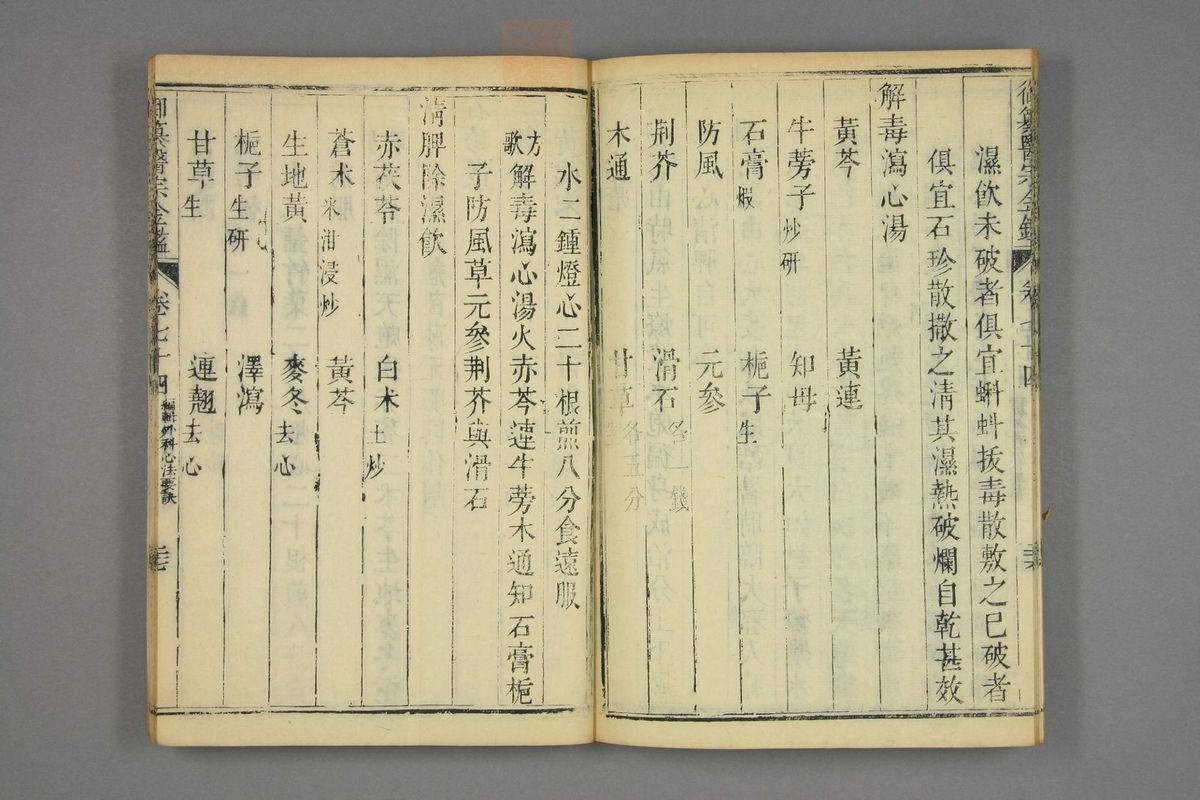 濕飲未破者俱宜蝌蚪拔毒散敷之已破者
俱宜石珍散撒之清其濕熱破爛自乾甚效
解毒瀉心湯
黃芩 黃連
牛蒡子炒研 知母
石膏煆 梔子生
防風 元參
荆芥 滑石各一錢
木通 甘草各五分
水二鍾燈心二十根煎八分食遠服
方歌 解毒瀉心湯火赤芩連牛蒡木通知石膏梔
子防風草元參荆芥與滑石
清脾除濕飲
赤茯苓 白术土炒
蒼术米泔浸炒 黃芩
生地黃 麥冬去心
梔子生研 澤瀉
甘草生 連翹去心
御纂醫宗金鑑 卷七十四 編輯外科心法要訣